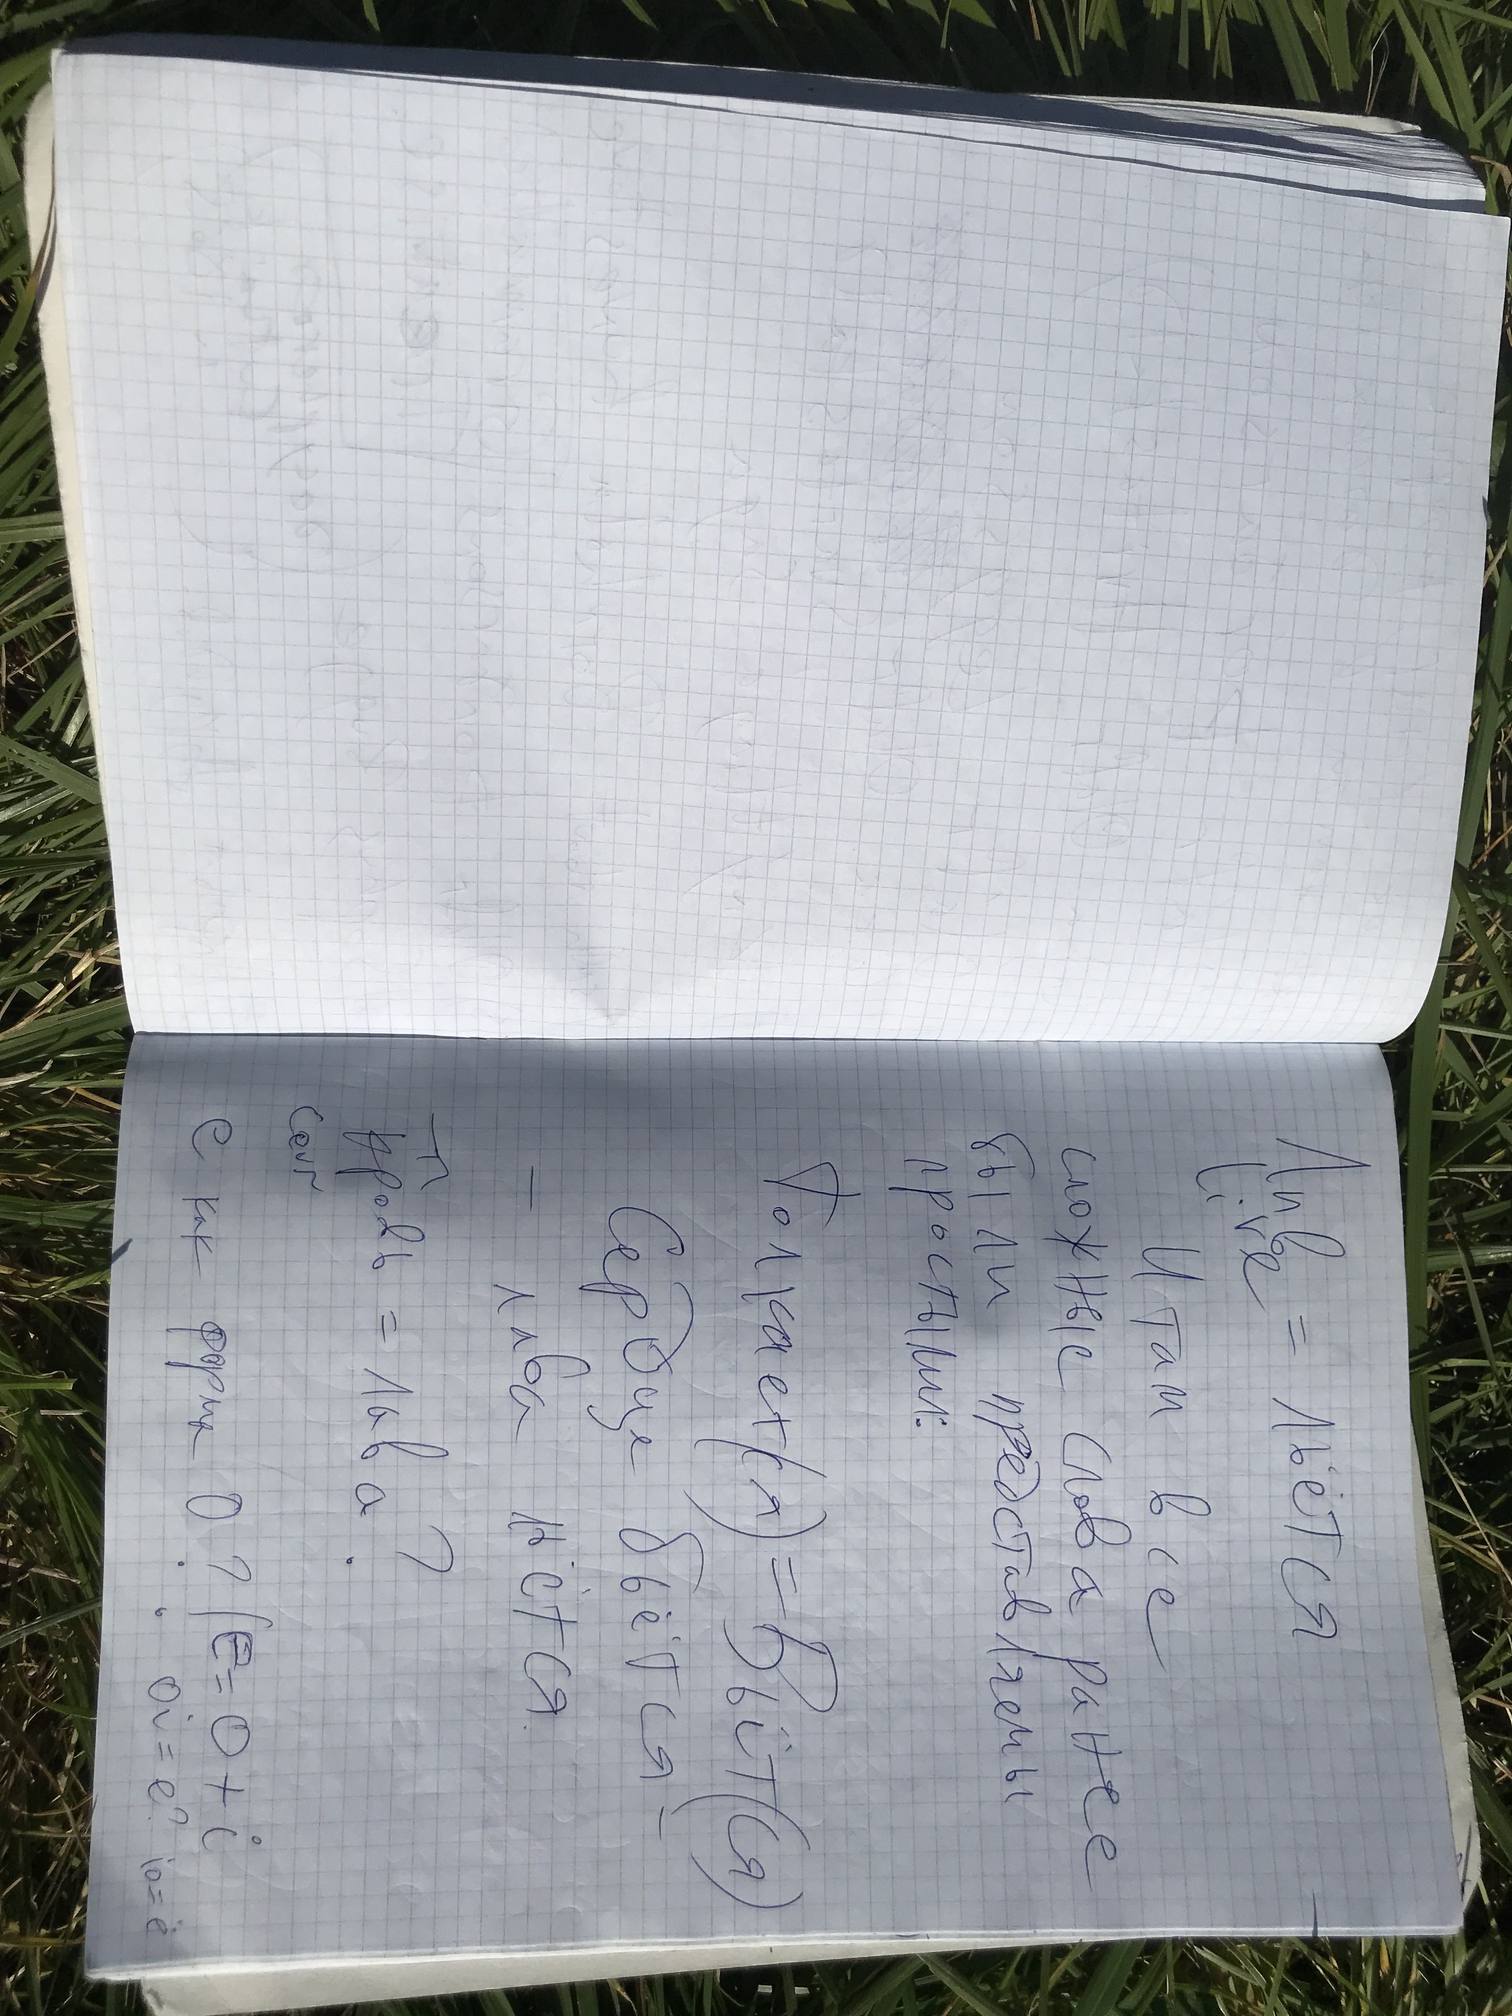 Лив = льётся
Live
И там все
сложные слова ранее
были представлены
простыми:
Толкает(ся) = Вьёт(ся)
Сердце бьётся –
– лава льётся.
Кровь = лава?
е как форма О? (E = O + i
oi = e? io = ё